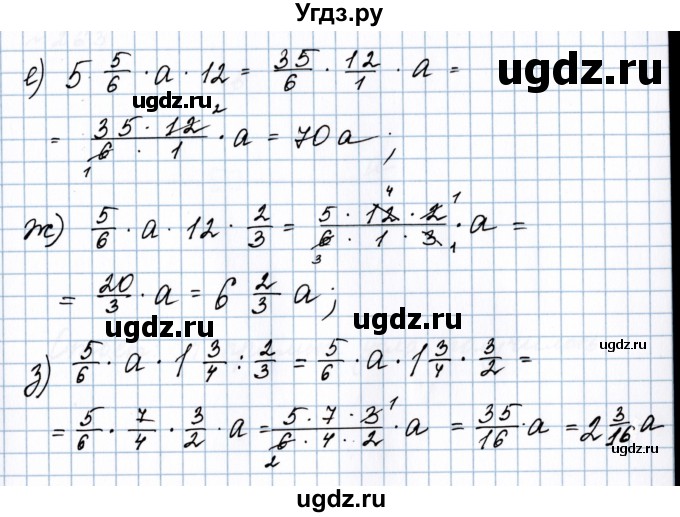 Угдз.ру
е) 5 5/6 · a · 12 = 35/6 · 12/1 · a =
ugdz.ru
ugdz.ru
= (35 · 12 2)/(6 1 · 1) · a = 70a;
ж) 5/6 · a · 12 · 2/3 = (5 · 12 4 · 2 1)/(6 3 · 1 · 3 1) · a =
= 20/3 · a = 6 2/3 a;
ugdz.ru
ugdz.ru
ugdz.ru
з) 5/6 · a · 1 3/4 : 2/3 = 5/6 · a · 1 3/4 · 3/2 =
= 5/6 · 7/4 · 3/2 · a = (5 · 7 · 3 1)/(6 2 · 4 · 2) · a = 35/16 · a = 2 3/16 a
ugdz.ru
ugdz.ru
ugdz.ru